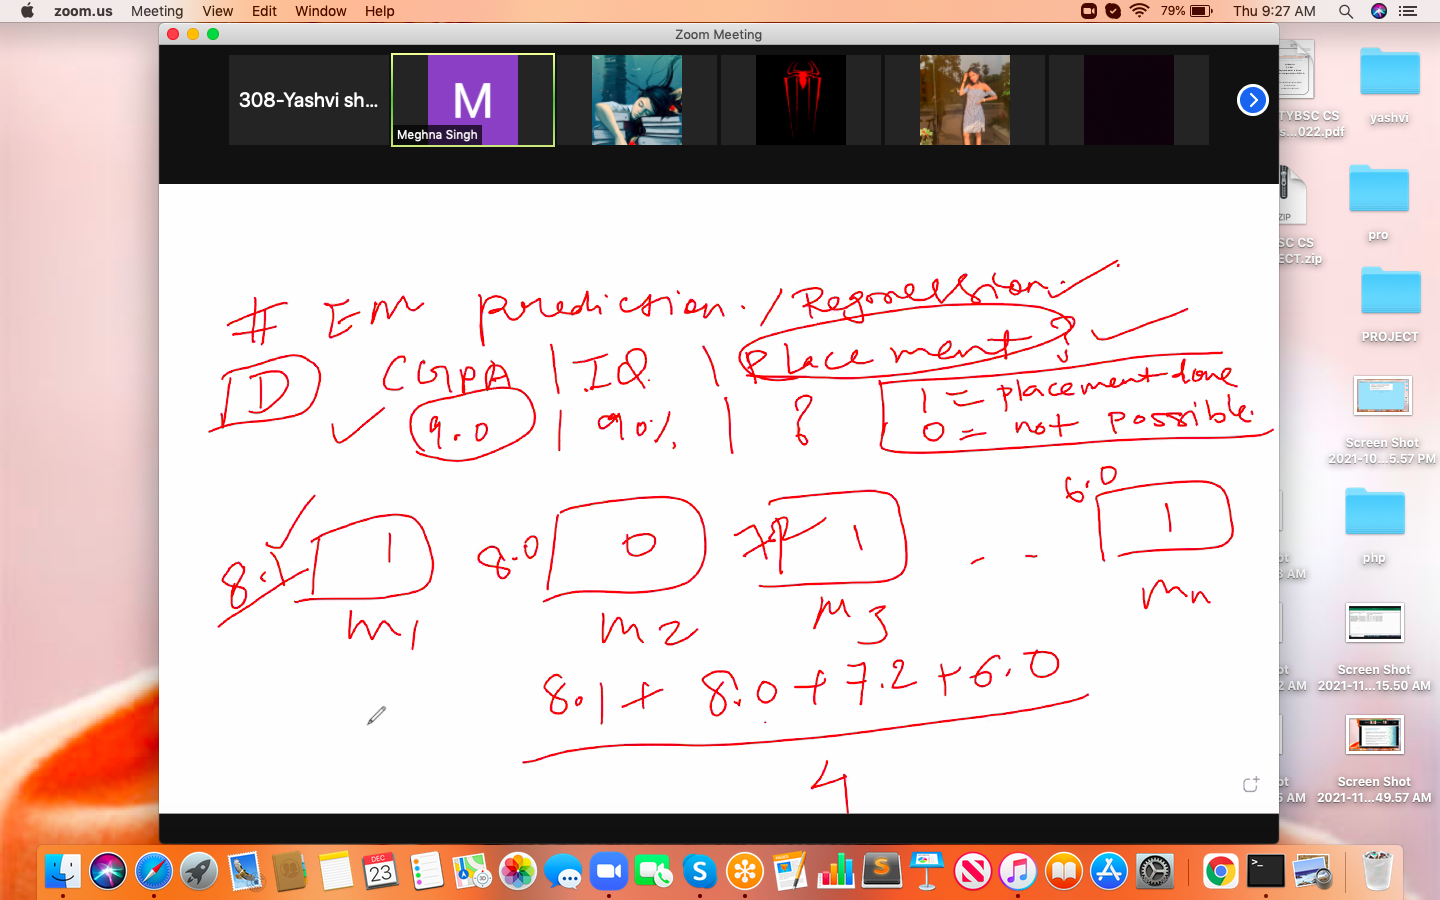 zoom.us Meeting View Edit Window Help 79% Thu 9:27 AM
Zoom Meeting
308-Yashvi sh...
M
Meghna Singh
# EM prediction. / Regression.
D CGPA | IQ | Placement ?
9.0 | 90% | ?
1 = placement done
0 = not possible.
8.1 1 8.0 0 7.2 1 - - 6.0 1
M1 M2 M3 Mn
8.1 + 8.0 + 7.2 + 6.0
4
TYBSC CS
s...022.pdf
yashvi
ZIP
SC CS
ECT.zip
pro
PROJECT
Screen Shot
2021-10...5.57 PM
ot
3 AM
php
ot
2 AM
Screen Shot
2021-11...15.50 AM
ot
5 AM
Screen Shot
2021-11...49.57 AM
DEC
23